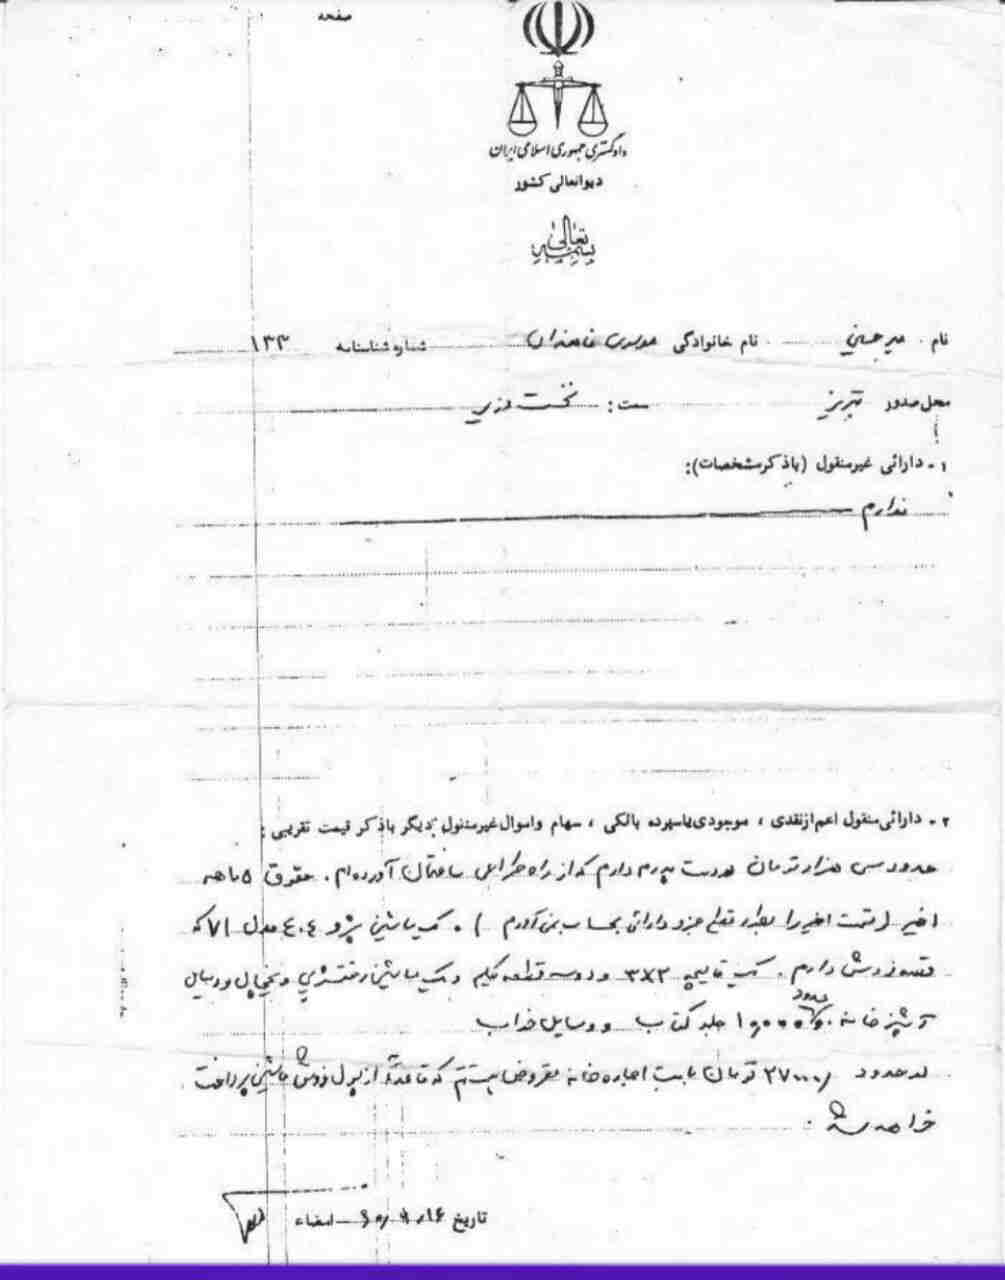 صفحه
دادگستری جمهوری اسلامی ایران
دیوانعالی کشور
بسمه تعالی
نام میرحسین نام خانوادگی موسوی خامنه‌ای شماره شناسنامه ۱۳۳
محل صدور تبریز سمت: نخست وزیر
۱- دارائی غیرمنقول (باذکرمشخصات):
ندارم
۲- دارائی منقول اعم ازنقدی، موجودی یاسپرده بانکی، سهام واموال غیرمنقول دیگر باذکر قیمت تقریبی:
حدود سی هزار تومان بدست پدرم دارم که از راه طراحی ساختمان آورده‌ام. حقوق ۵ ماهه
اخیر (قسمت اخیر را بطور قطع جزو دارائی بحساب نمی‌آورم). یک ماشین پژو ٤٠٤ مدل ۷۱ که
قصد فروش دارم. یک قالیچه ۳x۲ و دو سه قطعه گلیم و یک ماشین رختشوئی و یخچال و وسایل
آشپزخانه. حدود جلد کتاب و وسایل خواب
حدود ۲۷۰۰۰ تومان بابت اجاره خانه مقروض هستم که قاعدتاً از پول فروش ماشین پرداخت
خواهد شد.
تاریخ امضاء